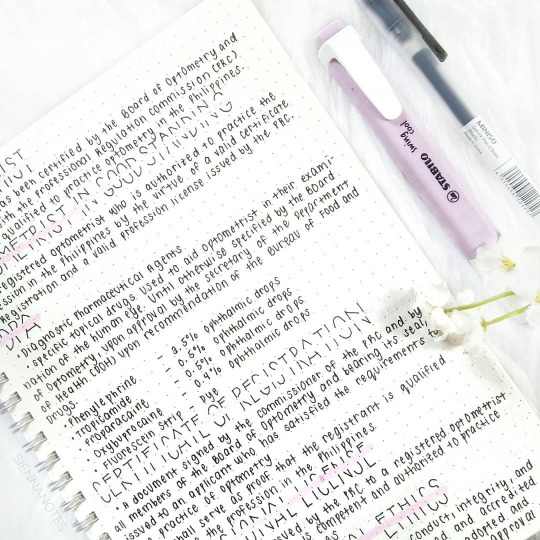 IST
has been certified by the Board of Optometry and
the Professional Regulation Commission (PRC)
qualified to practice optometry in the Philippines.
OPTOMETRIST IN GOOD STANDING
registered optometrist who is authorized to practice the
in the Philippines by the virtue of a valid certificate
registration and a valid profession license issued by the PRC.
DPA
• Diagnostic Pharmaceutical Agents
• specific topical drugs used to aid optometrist in their exami-
nation of the human eye. Until otherwise specified by the Board
of Optometry, upon approval by the secretary of the Department
of Health (DOH) upon recommendation of the Bureau of Food and
Drugs.
• Phenylephrine - 2.5% ophthalmic drops
• Tropicamide - 0.5% ophthalmic drops
• Proparacaine - 0.5% ophthalmic drops
• Oxybuprocaine - 0.4% ophthalmic drops
• Fluorescein Strip - Dye
CERTIFICATE OF REGISTRATION
• A document signed by the commissioner of the PRC and by
all members of the Board of Optometry and bearing its seal,
issued to an applicant who has satisfied the requirements to
practice of optometry
shall serve as proof that the registrant is qualified
the profession in the Philippines.
LICENSE
by the PRC to a registered optometrist
is competent and authorized to practice
ETHICS
conduct, integrity, and
and accredited
adopted and
approval
STABILO swing cool
MINISO
SIENNANOTES